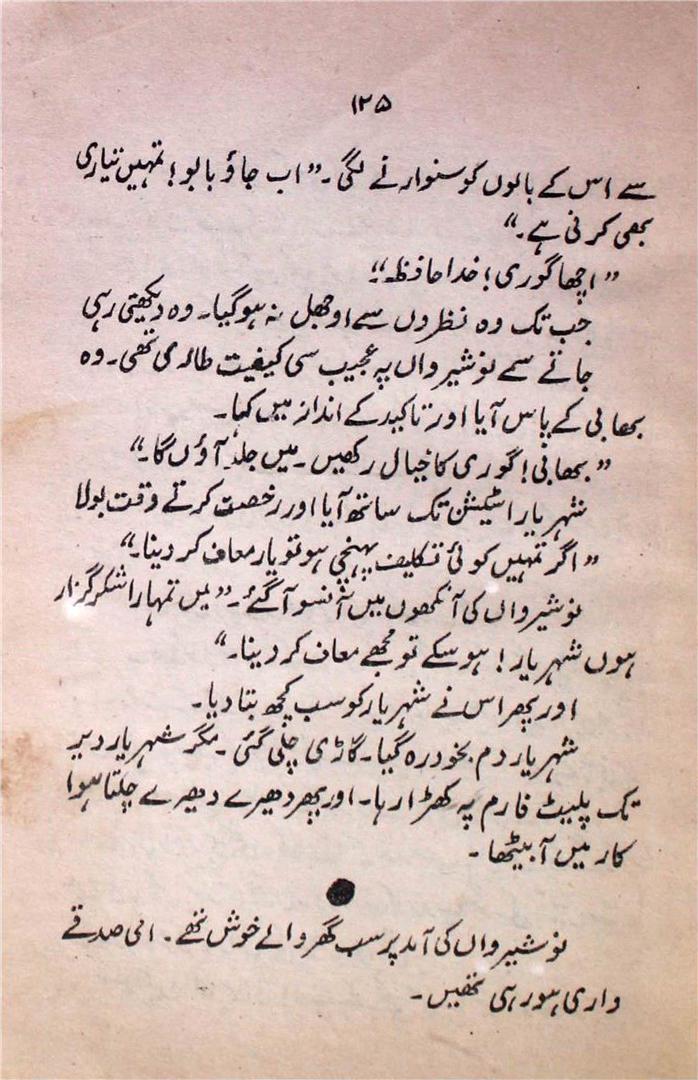 ۱۲۵
سے اس کے بالوں کو سنوارنے لگی۔ "اب جاؤ بابو! تمہیں تیاری
بھی کرنی ہے۔"
"اچھا گوری! خدا حافظ۔"
جب تک وہ نظروں سے اوجھل نہ ہو گیا۔ وہ دیکھتی رہی
جانے سمے نوشیرواں پہ عجیب سی کیفیت طاری تھی۔ وہ
بھابی کے پاس آیا اور تاکید کے انداز میں کہا۔
"بھابی! گوری کا خیال رکھیں۔ میں جلد آؤں گا۔"
شہریار اسٹیشن تک ساتھ آیا اور رخصت کرتے وقت بولا
"اگر تمہیں کوئی تکلیف پہنچی ہو تو یار معاف کر دینا۔"
نوشیرواں کی آنکھوں میں آنسو آ گئے۔ "میں تمہارا شکر گزار
ہوں شہریار! ہو سکے تو مجھے معاف کر دینا۔"
اور پھر اس نے شہریار کو سب کچھ بتا دیا۔
شہریار دم بخود رہ گیا۔ گاڑی چلی گئی۔ مگر شہریار دیر
تک پلیٹ فارم پہ کھڑا رہا۔ اور پھر دھیرے دھیرے چلتا ہوا
کار میں آ بیٹھا۔
نوشیرواں کی آمد پر سب گھر والے خوش تھے۔ امی صدقے
واری ہو رہی تھیں۔